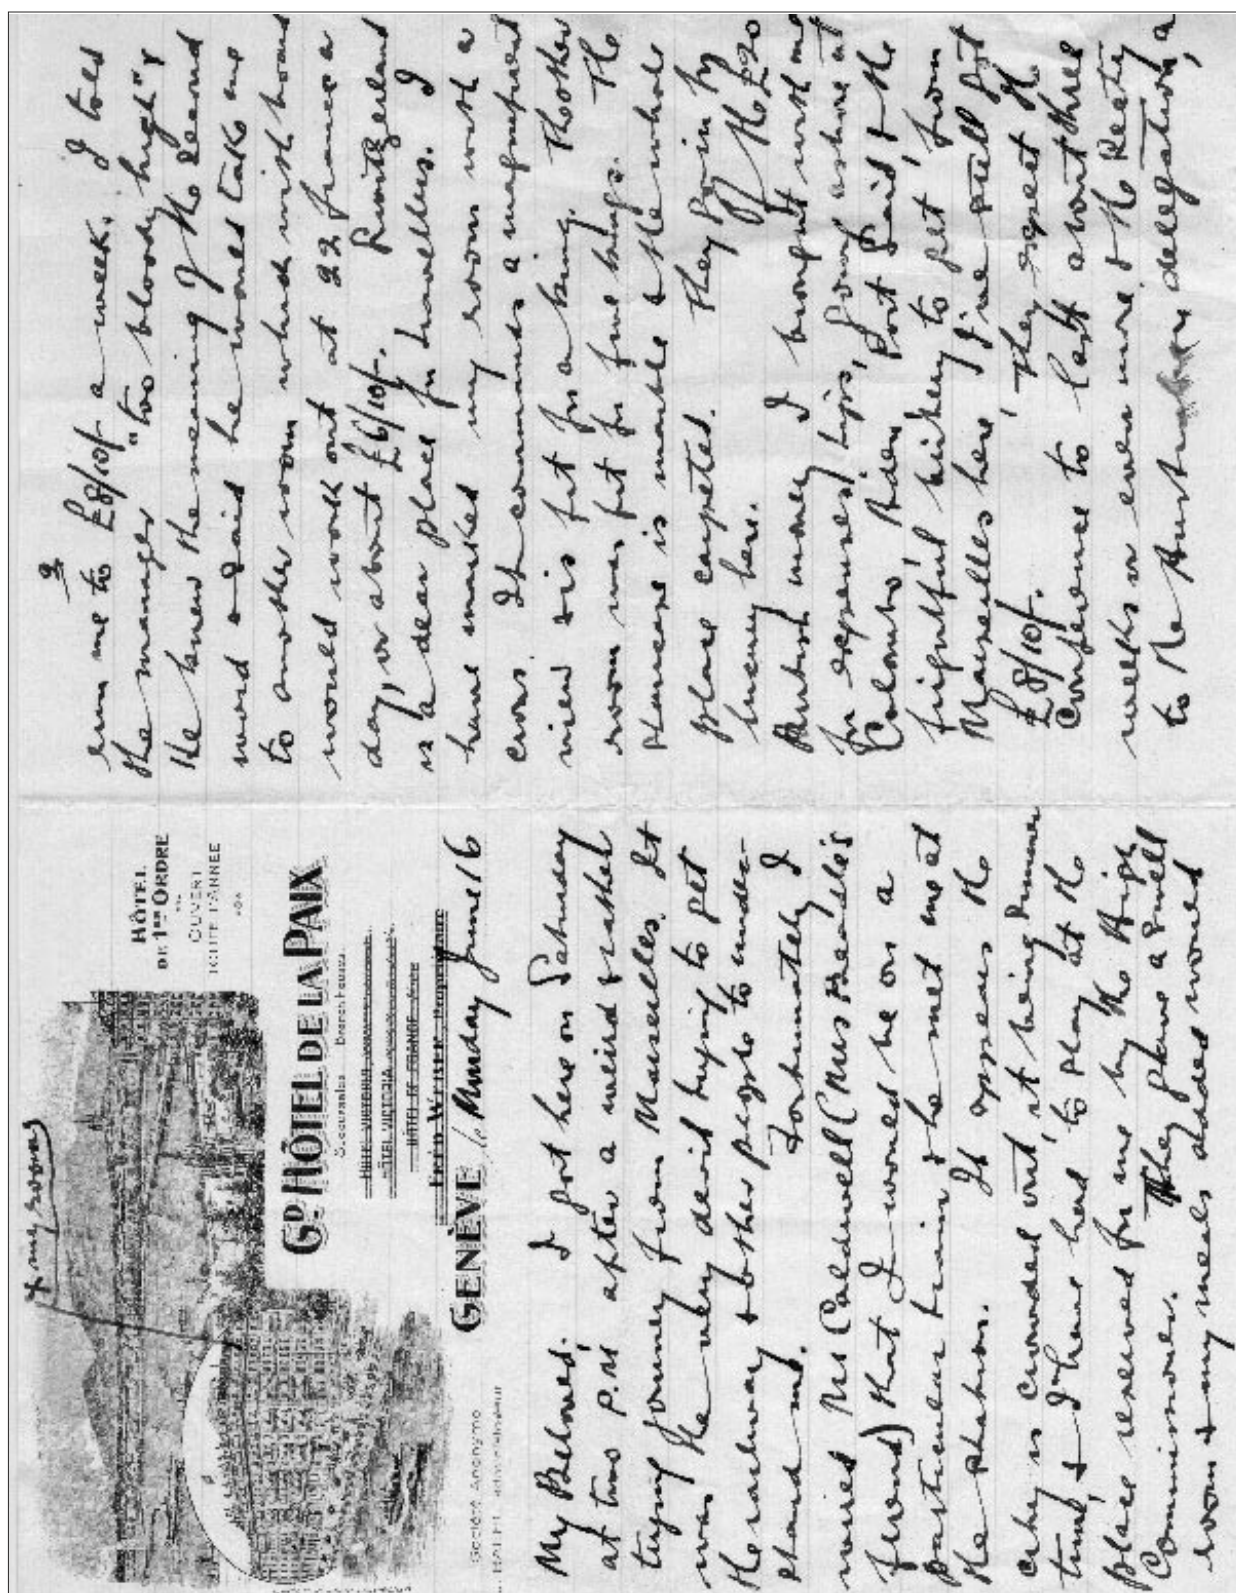 x my room
HÔTEL
DE 1er ORDRE
OUVERT
TOUTE L'ANNÉE
GD HÔTEL DE LA PAIX
Succursales Branch houses
HÔTEL VICTORIA
HÔTEL VICTORIA
HÔTEL DE FRANCE
FRÉD WEBER, Propriétaire
GENÈVE le Monday June 16
Société Anonyme
My Beloved. I got here on Saturday
at two P.M. after a weird & rather
trying journey from Marseilles. It
was the very devil trying to get
the railway & other people to under-
stand me. Fortunately I
wired Mr Caldwell (Mrs Beardle's
friend) that I would be on a
particular train & he met me at
the station. It appears the
city is crowded out, it being Summer
time, & I have had to stay at the
place reserved for me by the High
Commissioner. They a small
room & my meals added would
2
run me to £8/10/- a week. I told
the manager "too bloody high" &
he knew the meaning of the second
word & said he would take me
to another room which with board
would work out at 22 francs a
day, or about £6/10/-. Switzerland
is a dear place for travellers. I
have marked my room with a
cross. It commands a magnificent
view & is fit for a king. The other
room was fit for five kings. The
staircase is marble & the whole
place carpeted. They go in for
luxury here. Of the £20
British money I brought with me
for expenses, tips, going ashore at
Colombo, Aden, Port Said & the
frightful bikery to get from
Marseilles here, I've still got
£8/10/-. They expect the
Conference to last about three
weeks or even more & the Secty
to the Australian delegation, a